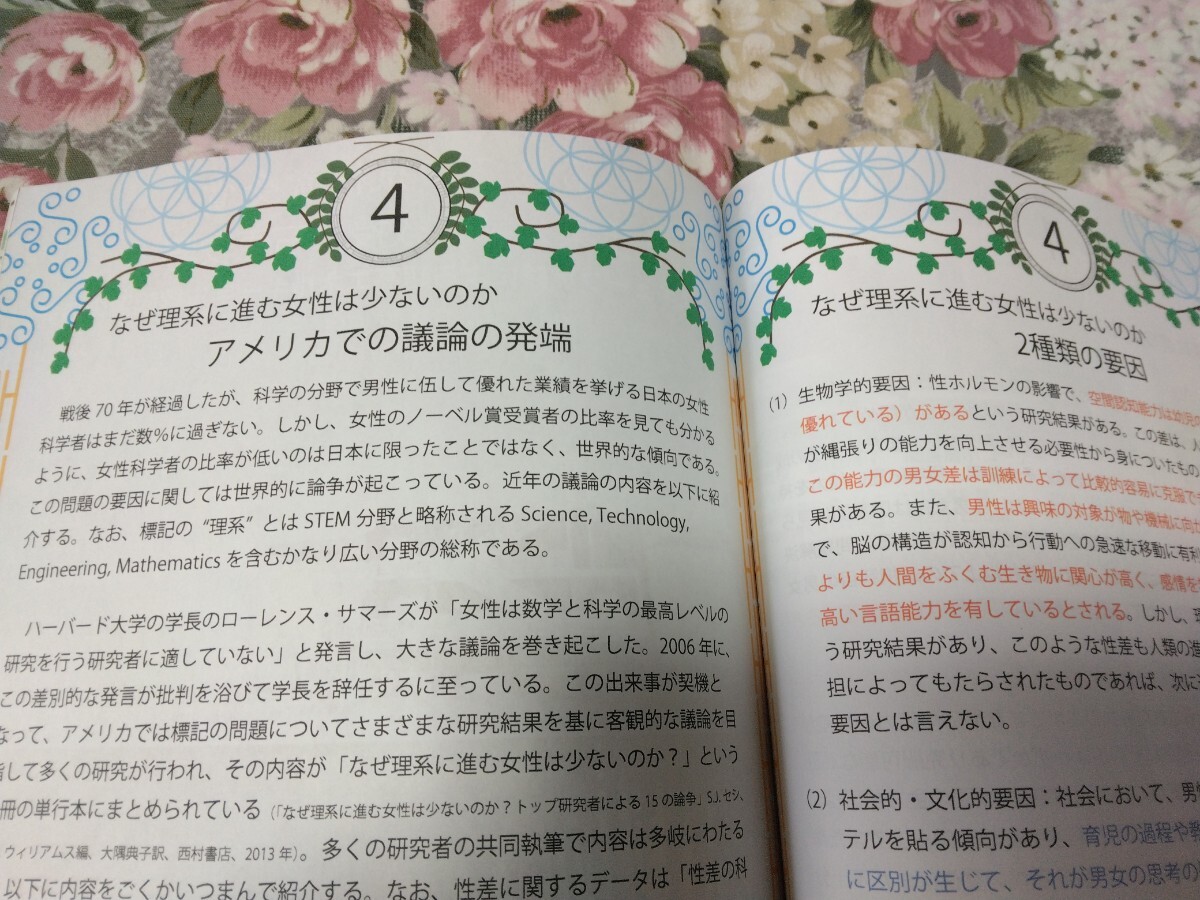 4
なぜ理系に進む女性は少ないのか
アメリカでの議論の発端
戦後 70 年が経過したが、科学の分野で男性に伍して優れた業績を挙げる日本の女性
科学者はまだ数%に過ぎない。しかし、女性のノーベル賞受賞者の比率を見ても分かる
ように、女性科学者の比率が低いのは日本に限ったことではなく、世界的な傾向である。
この問題の要因に関しては世界的に論争が起こっている。近年の議論の内容を以下に紹
介する。なお、標記の “理系” とは STEM 分野と略称される Science, Technology,
Engineering, Mathematics を含むかなり広い分野の総称である。
ハーバード大学の学長のローレンス・サマーズが「女性は数学と科学の最高レベルの
研究を行う研究者に適していない」と発言し、大きな議論を巻き起こした。2006 年に、
この差別的な発言が批判を浴びて学長を辞任するに至っている。この出来事が契機と
なって、アメリカでは標記の問題についてさまざまな研究結果を基に客観的な議論を目
指して多くの研究が行われ、その内容が「なぜ理系に進む女性は少ないのか？」という
冊の単行本にまとめられている（「なぜ理系に進む女性は少ないのか？トップ研究者による 15 の論争」S.J. セシ、
ウィリアムス編、大隅典子訳、西村書店、2013 年）。多くの研究者の共同執筆で内容は多岐にわたる
以下に内容をごくかいつまんで紹介する。なお、性差に関するデータは「性差の科
4
なぜ理系に進む女性は少ないのか
2種類の要因
(1) 生物学的要因：性ホルモンの影響で、空間認知能力は幼児
優れている）があるという研究結果がある。この差は、
が縄張りの能力を向上させる必要性から身についたもの
この能力の男女差は訓練によって比較的容易に克服で
果がある。また、男性は興味の対象が物や機械に向
で、脳の構造が認知から行動への急速な移動に有利
よりも人間をふくむ生き物に関心が高く、感情を
高い言語能力を有しているとされる。しかし、
う研究結果があり、このような性差も人類の進
担によってもたらされたものであれば、次に
要因とは言えない。
(2) 社会的・文化的要因：社会において、男
テルを貼る傾向があり、育児の過程や
に区別が生じて、それが男女の思考の